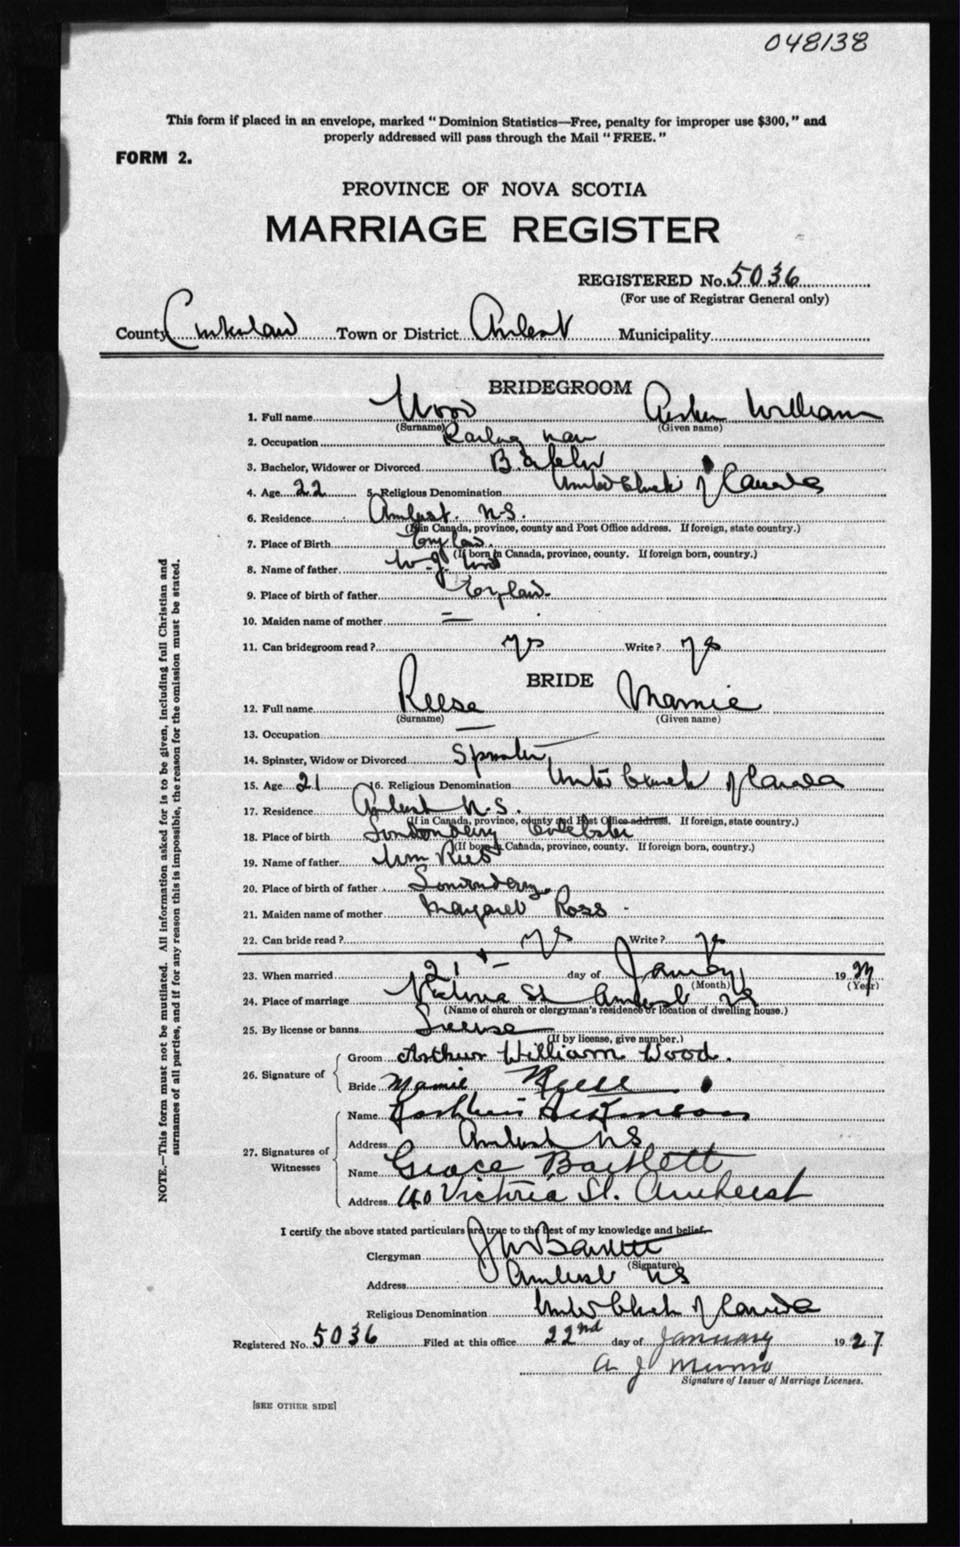 048138
This form if placed in an envelope, marked "Dominion Statistics—Free, penalty for improper use $300," and
properly addressed will pass through the Mail "FREE."
FORM 2.
PROVINCE OF NOVA SCOTIA
MARRIAGE REGISTER
REGISTERED No. 5036
(For use of Registrar General only)
County Cumberland Town or District Amherst Municipality
BRIDEGROOM
1. Full name Wood Arthur William
(Surname) (Given name)
2. Occupation
3. Bachelor, Widower or Divorced Bachelor
4. Age 22 5. Religious Denomination United Church of Canada
6. Residence Amherst. N.S.
(If in Canada, province, county and Post Office address. If foreign, state country.)
7. Place of Birth England.
(If born in Canada, province, county. If foreign born, country.)
8. Name of father W. J. Wood
9. Place of birth of father England.
10. Maiden name of mother —
11. Can bridegroom read? yes Write? yes
BRIDE
12. Full name Reese Mamie
(Surname) (Given name)
13. Occupation —
14. Spinster, Widow or Divorced Spinster
15. Age 21 16. Religious Denomination United Church of Canada
17. Residence Amherst N.S.
(If in Canada, province, county and Post Office address. If foreign, state country.)
18. Place of birth Londonderry Colchester
(If born in Canada, province, county. If foreign born, country.)
19. Name of father Wm Rees
20. Place of birth of father Londonderry.
21. Maiden name of mother Margaret Ross
22. Can bride read? yes Write? yes
23. When married 21st day of January 1927
(Month) (Year)
24. Place of marriage Victoria St Amherst NS
(Name of church or clergyman's residence or location of dwelling house.)
25. By license or banns License
(If by license, give number.)
26. Signature of Groom Arthur William Wood.
Bride Mamie Reese
27. Signatures of Witnesses Name
Address Amherst NS
Name Grace Bartlett
Address 40 Victoria St. Amherst
I certify the above stated particulars are true to the best of my knowledge and belief.
Clergyman J W Bartlett
(Signature)
Address Amherst NS
Religious Denomination United Church of Canada
Registered No. 5036 Filed at this office 22nd day of January 1927
A J Munro
Signature of Issuer of Marriage Licenses.
[SEE OTHER SIDE]
NOTE.—This form must not be mutilated. All information asked for is to be given, including full Christian and
surnames of all parties, and if for any reason this is impossible, the reason for the omission must be stated.